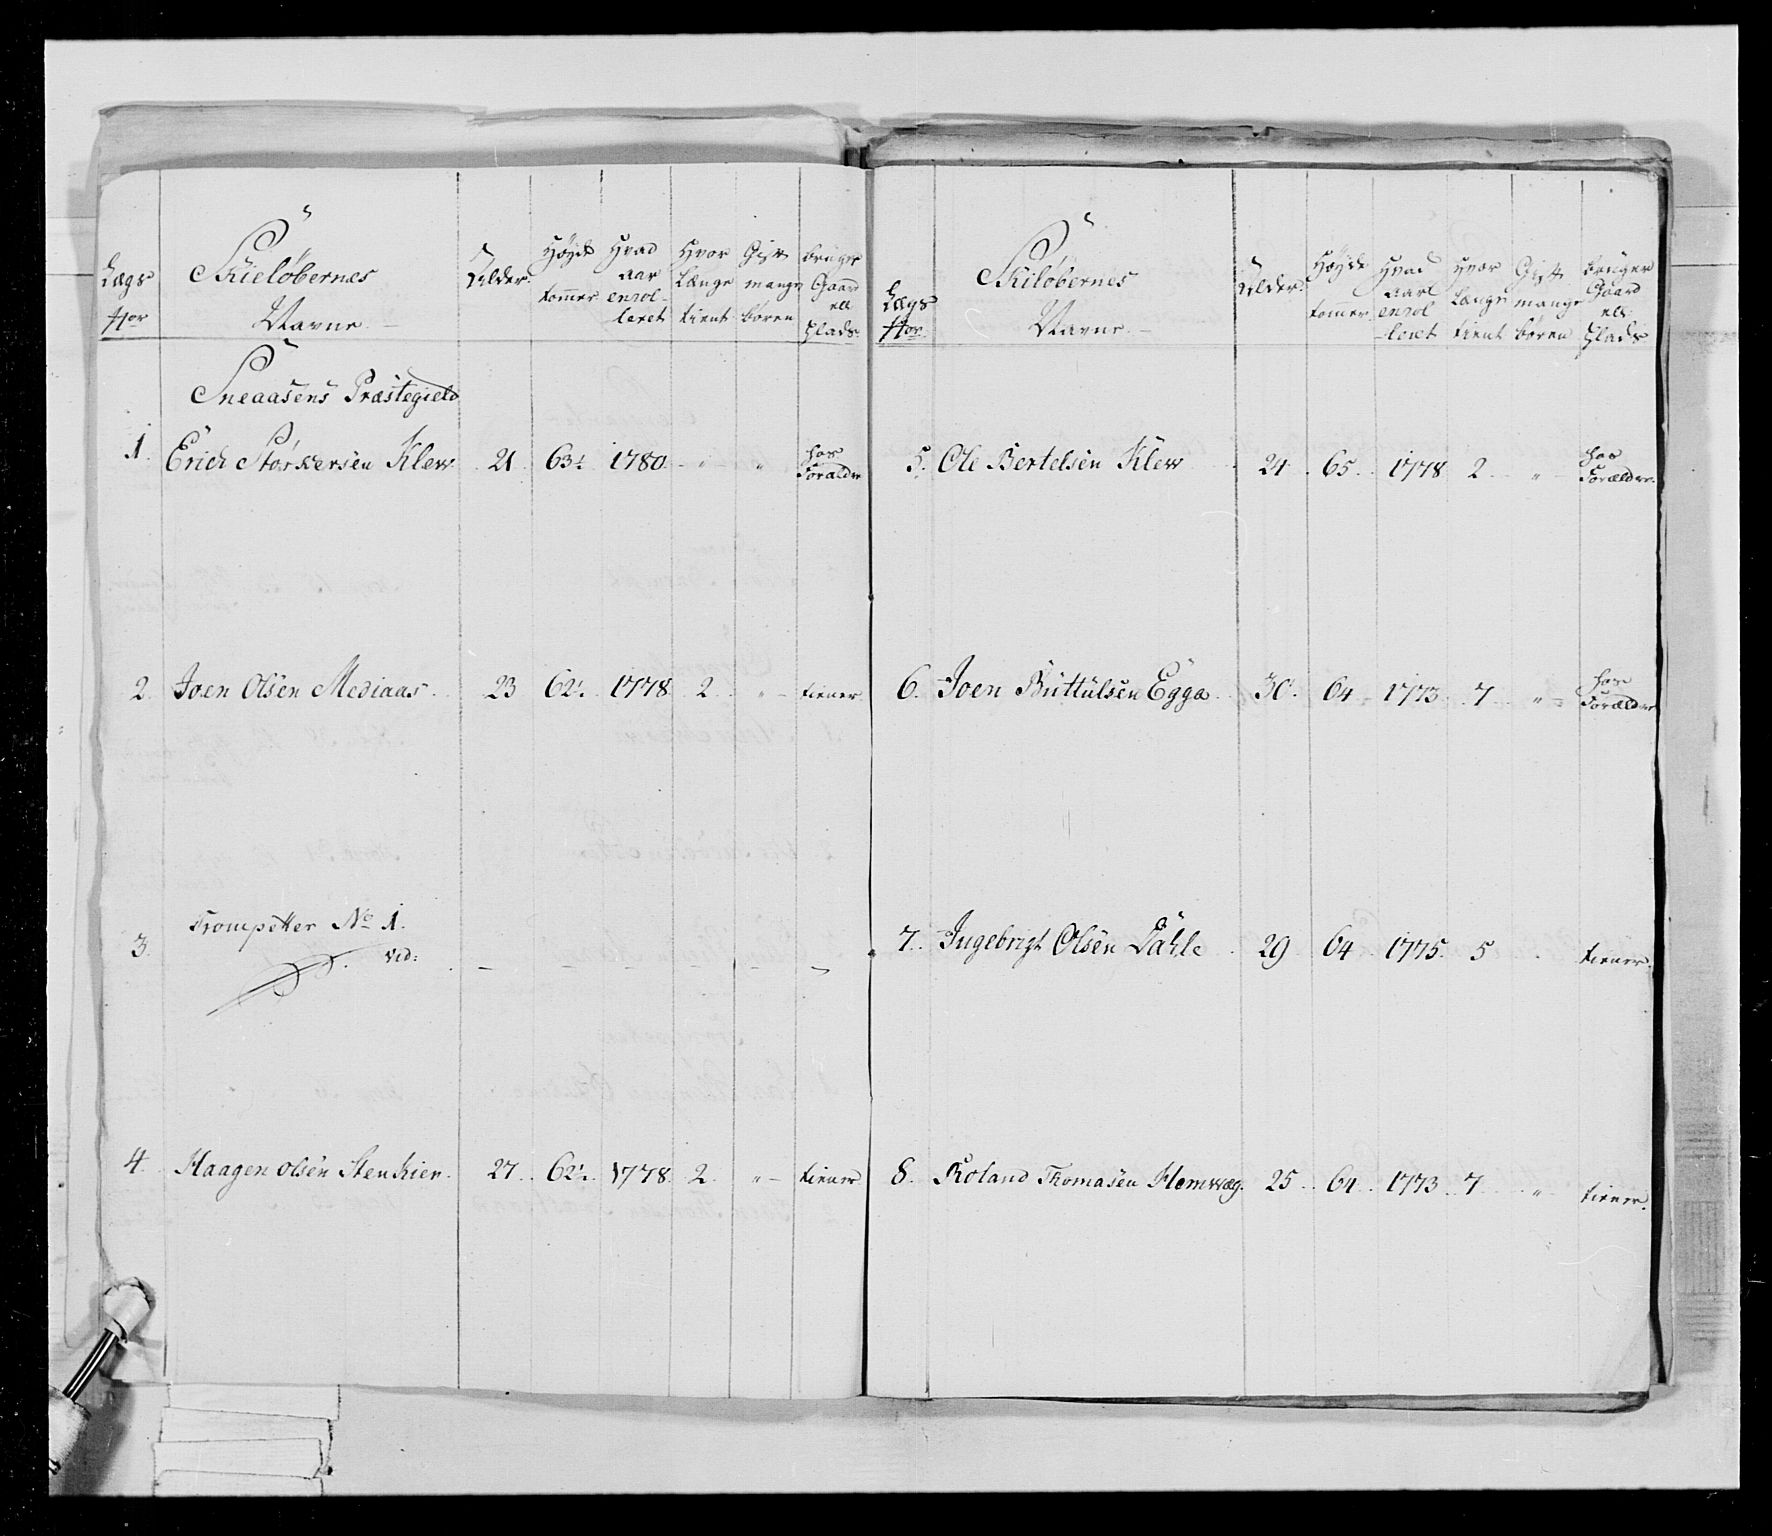 Lægs Nor | Skieløbernes Navne | Alder | Høyde tommer | Hvad aar enrol-leret | Hvor Længe tient | Gift mange børen | bruger Gaard ell Plads.
Sneaasens Præstegield
1. Erich Størkersen Klew 21 63½ 1780 - " - " hos Forældre
2. Joen Olsen Mediaas. 23 62½. 1778 2. " - tiener
3. Trompetter No 1.
vid:
4. Haagen Olsen Stenkier. 27. 62½. 1778. 2. " - tiener
Lægs Nor. | Skiløbernes Navne. | Alder. | Høyde tomer | Hvad aarl enrol-leret | Hvor Længe tient | Gift mange børen | bruger Gaard ell: Plads
5. Ole Bertelsen Klew 24 65. 1778 2. " hos Forældre.
6. Joen Buttulsen Egga. 30. 64 1773. 7 " hos Forældre
7. Ingebrigt Olsen Dahle 29 64 1775. 5 tiener.
8. Roland Thomasen Hemvæg. 25. 64. 1773. 7 " tiener.